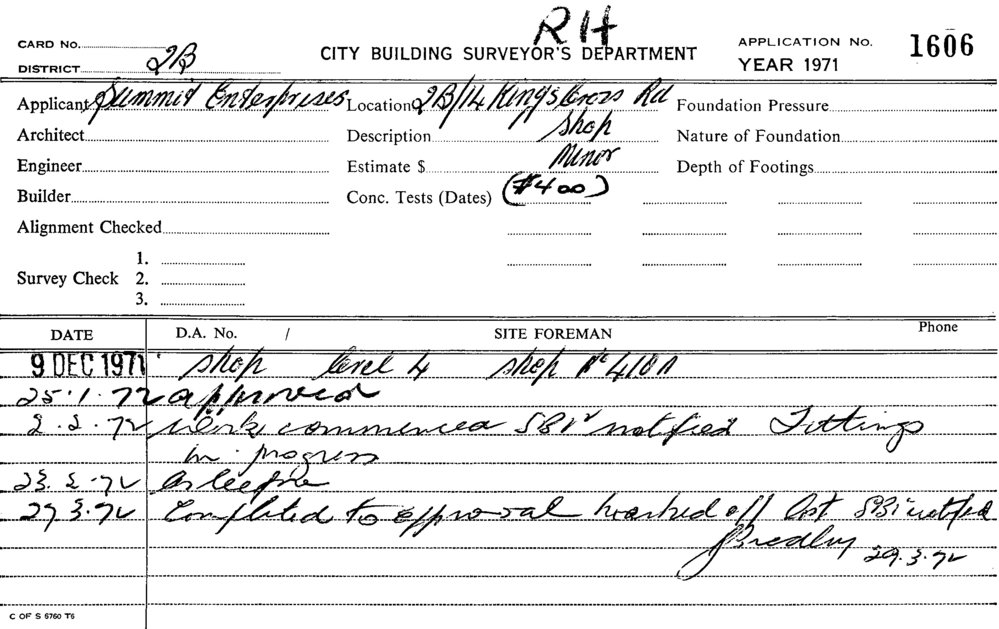 RH
CARD No.
DISTRICT 2B
CITY BUILDING SURVEYOR'S DEPARTMENT
APPLICATION No. 1606
YEAR 1971
Applicant Summit Enterprises Location 2B/14 Kings Cross Rd Foundation Pressure
Architect Description Shop Nature of Foundation
Engineer Estimate $ Minor Depth of Footings
Builder Conc. Tests (Dates) ($400)
Alignment Checked
1.
Survey Check 2.
3.
DATE D.A. No. / SITE FOREMAN Phone
9 DEC 1971 Shop level 4 shop No 410A
25.1.72 approved
2.2.72 Work commenced SBI notified Fittings
in progress
23.2.72 As before
29.3.72 Completed to approval marked off SBI notified
29.3.72
C OF S 6760 T6